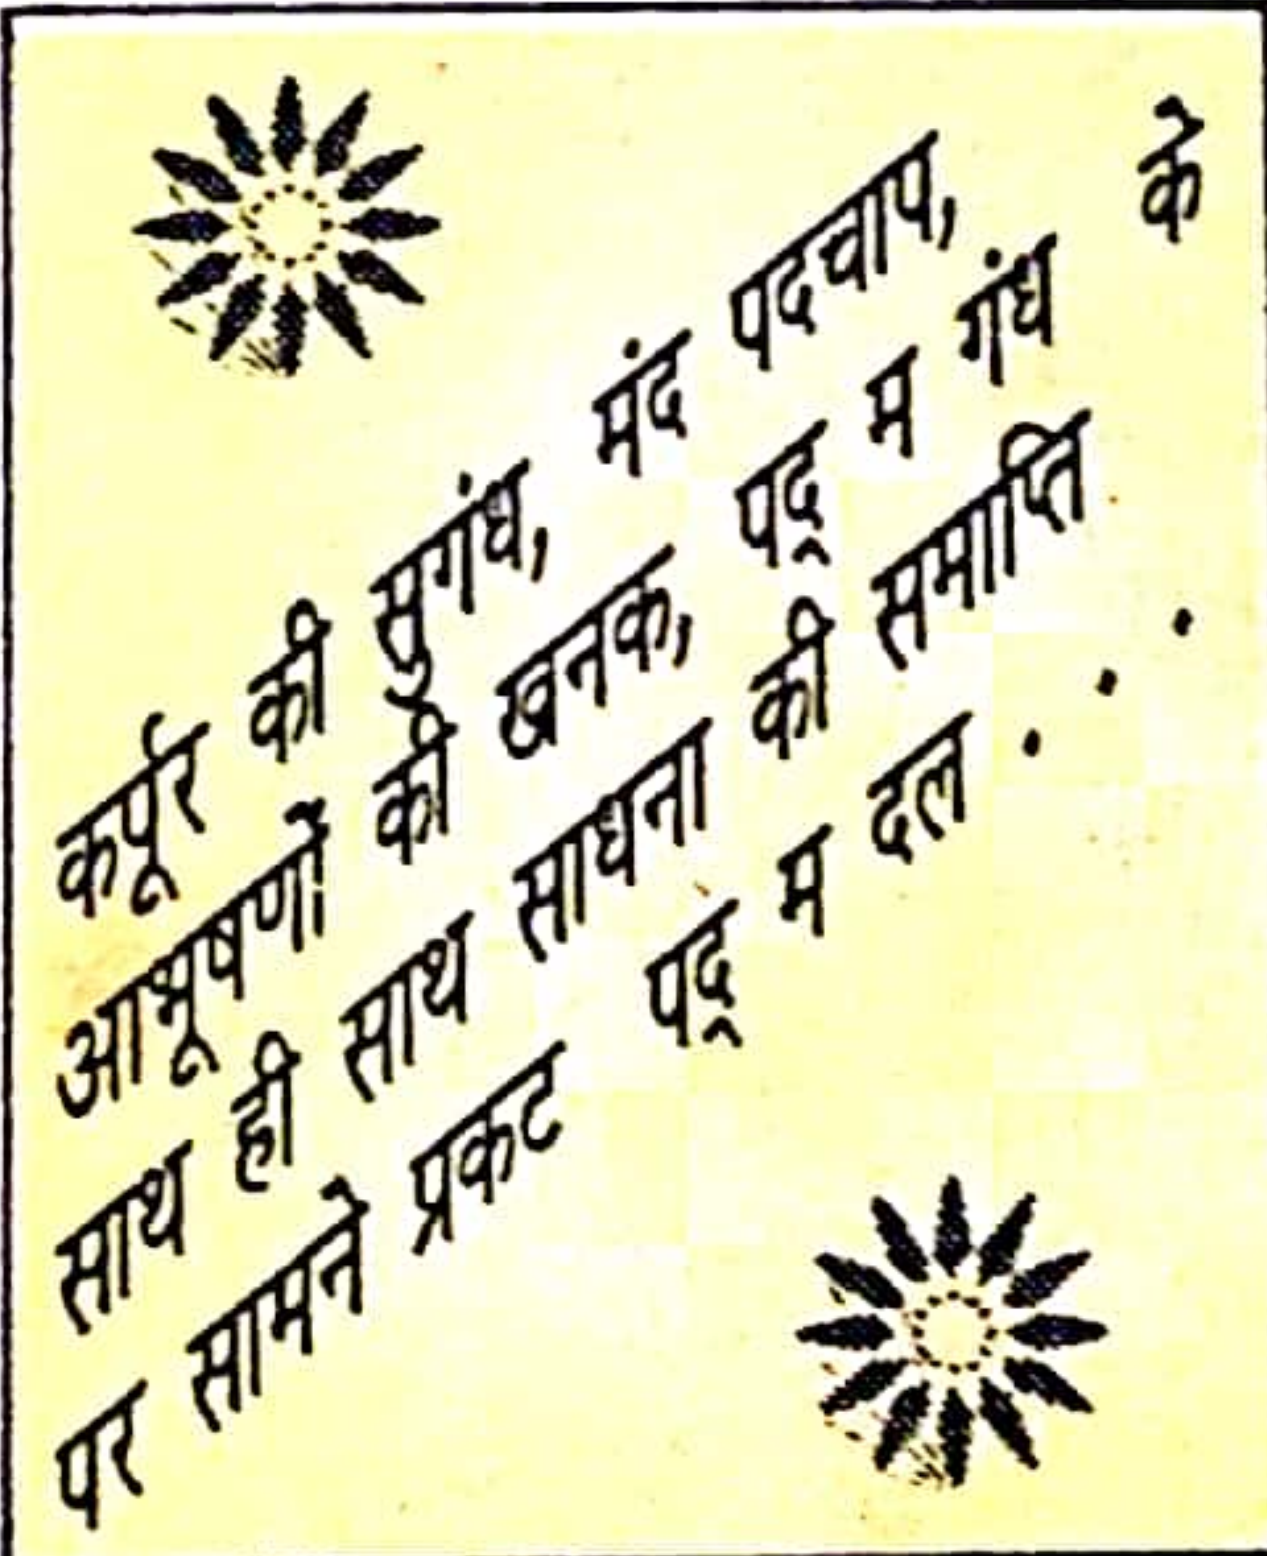 कर्पूर की सुगंध, मंद पदचाप,
आभूषणों की खनक, पद् म गंध के
साथ ही साथ साधना की समाप्ति
पर सामने प्रकट पद् म दल . . .